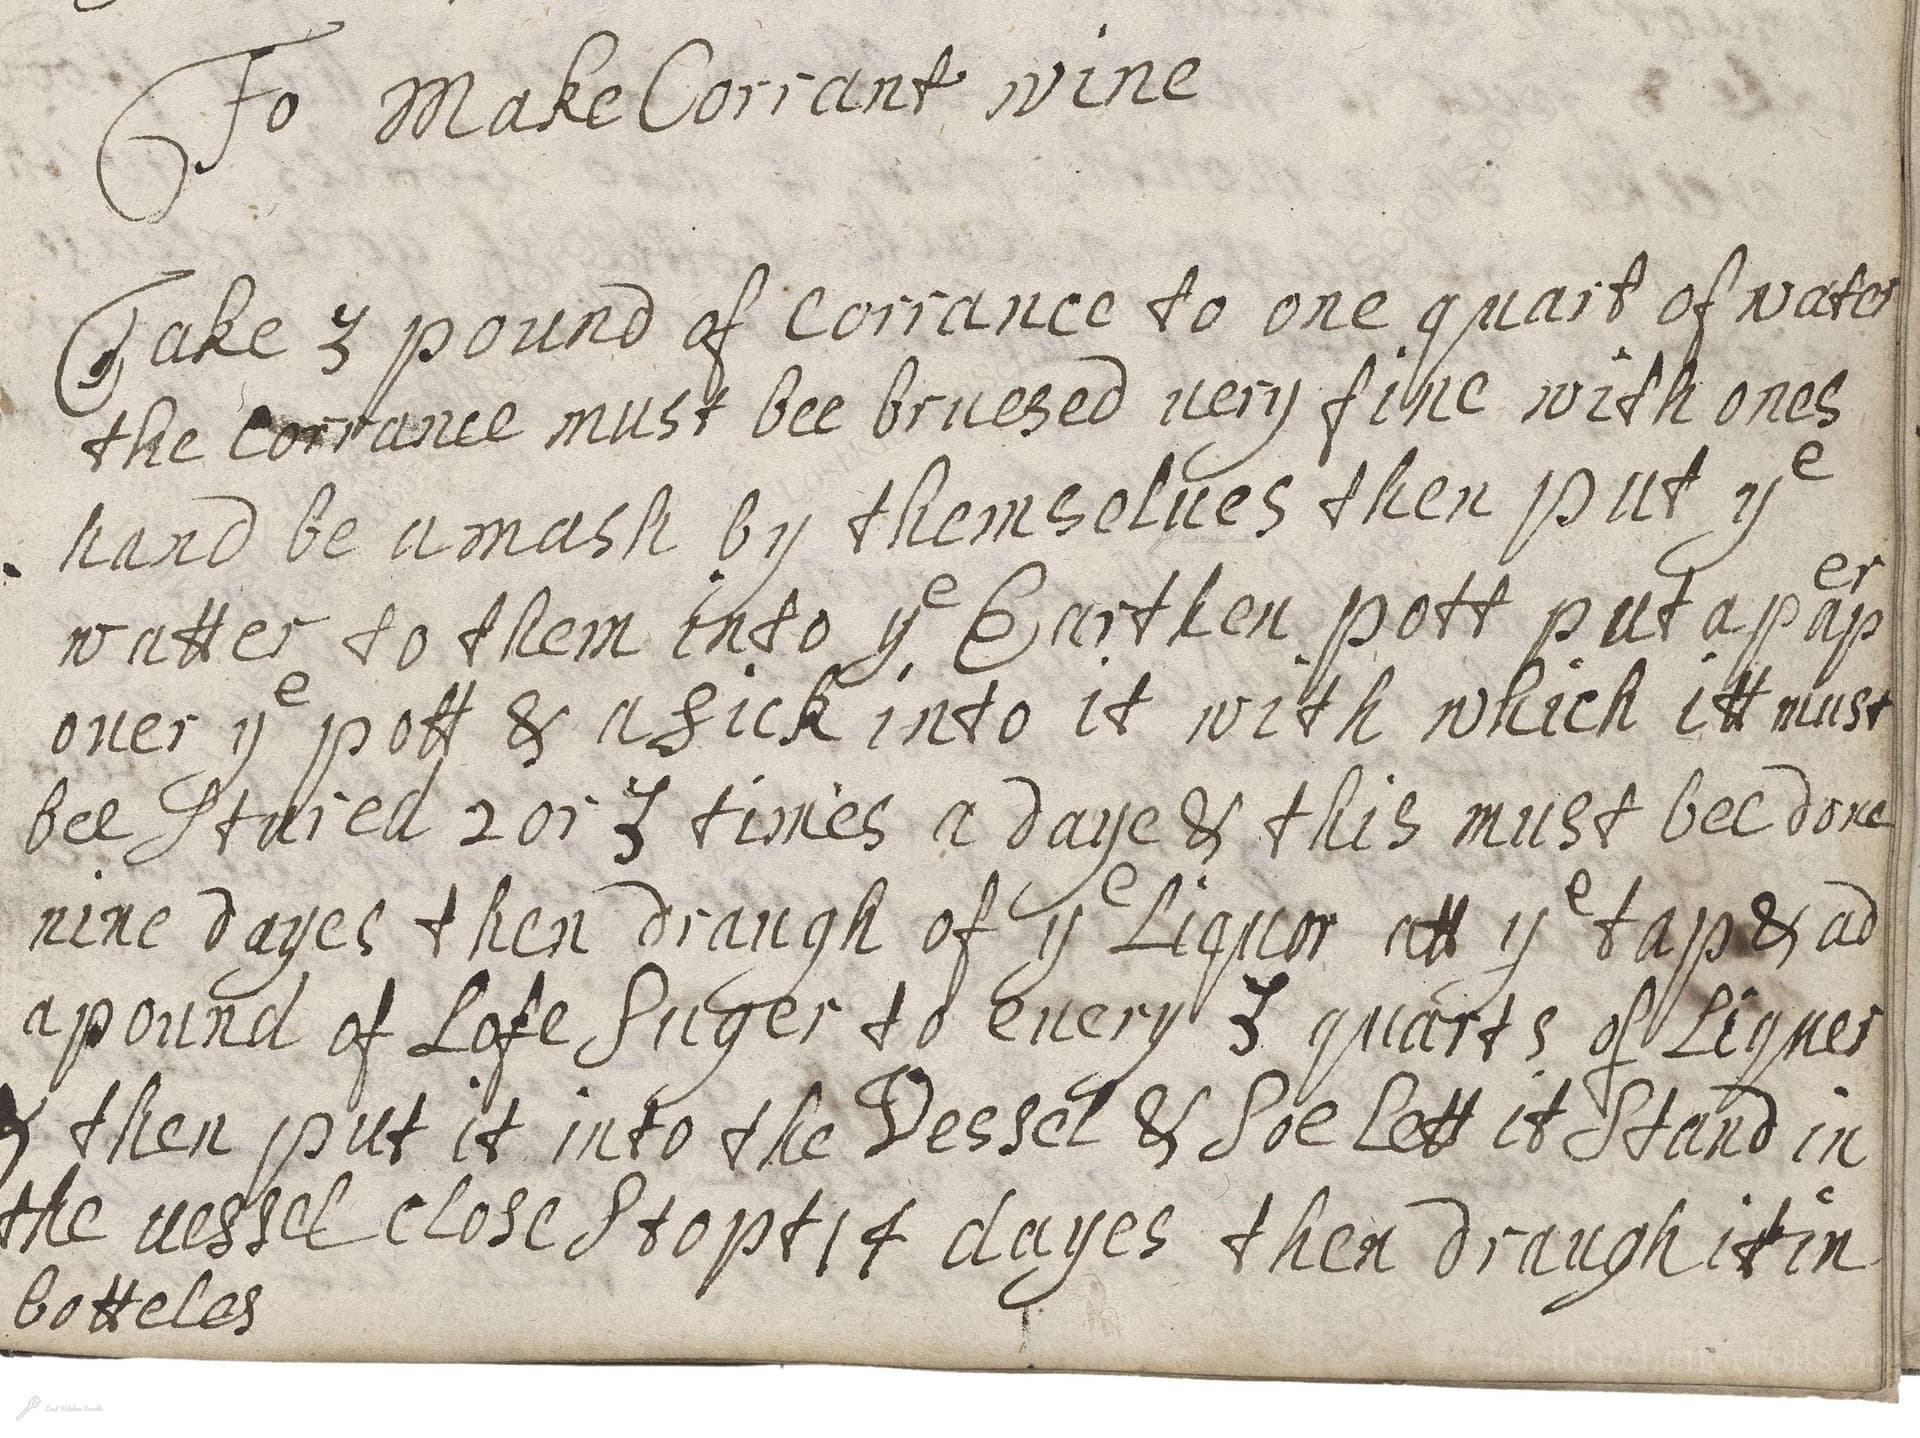 To Make Corrant wine
Take 3 pound of Corrance to one quart of water
the Corrance must bee bruesed uery fine with ones
hand be a mash by themselues then put yᵉ
watter to them into yᵉ Earthen pott put a papᵉʳ
ouer yᵉ pott & a stick into it with which itt must
bee Stured 2 or 3 times a daye & this must bee done
nine dayes then draugh of yᵉ Liquor att yᵉ tap & ad
a pound of Lofe Suger to euery 3 quarts of Liquer
& then put it into the Vessel & Soe Lett it Stand in
the uessel close Stopt 14 dayes then draugh it in
botteles
Lost Kitchen Scrolls